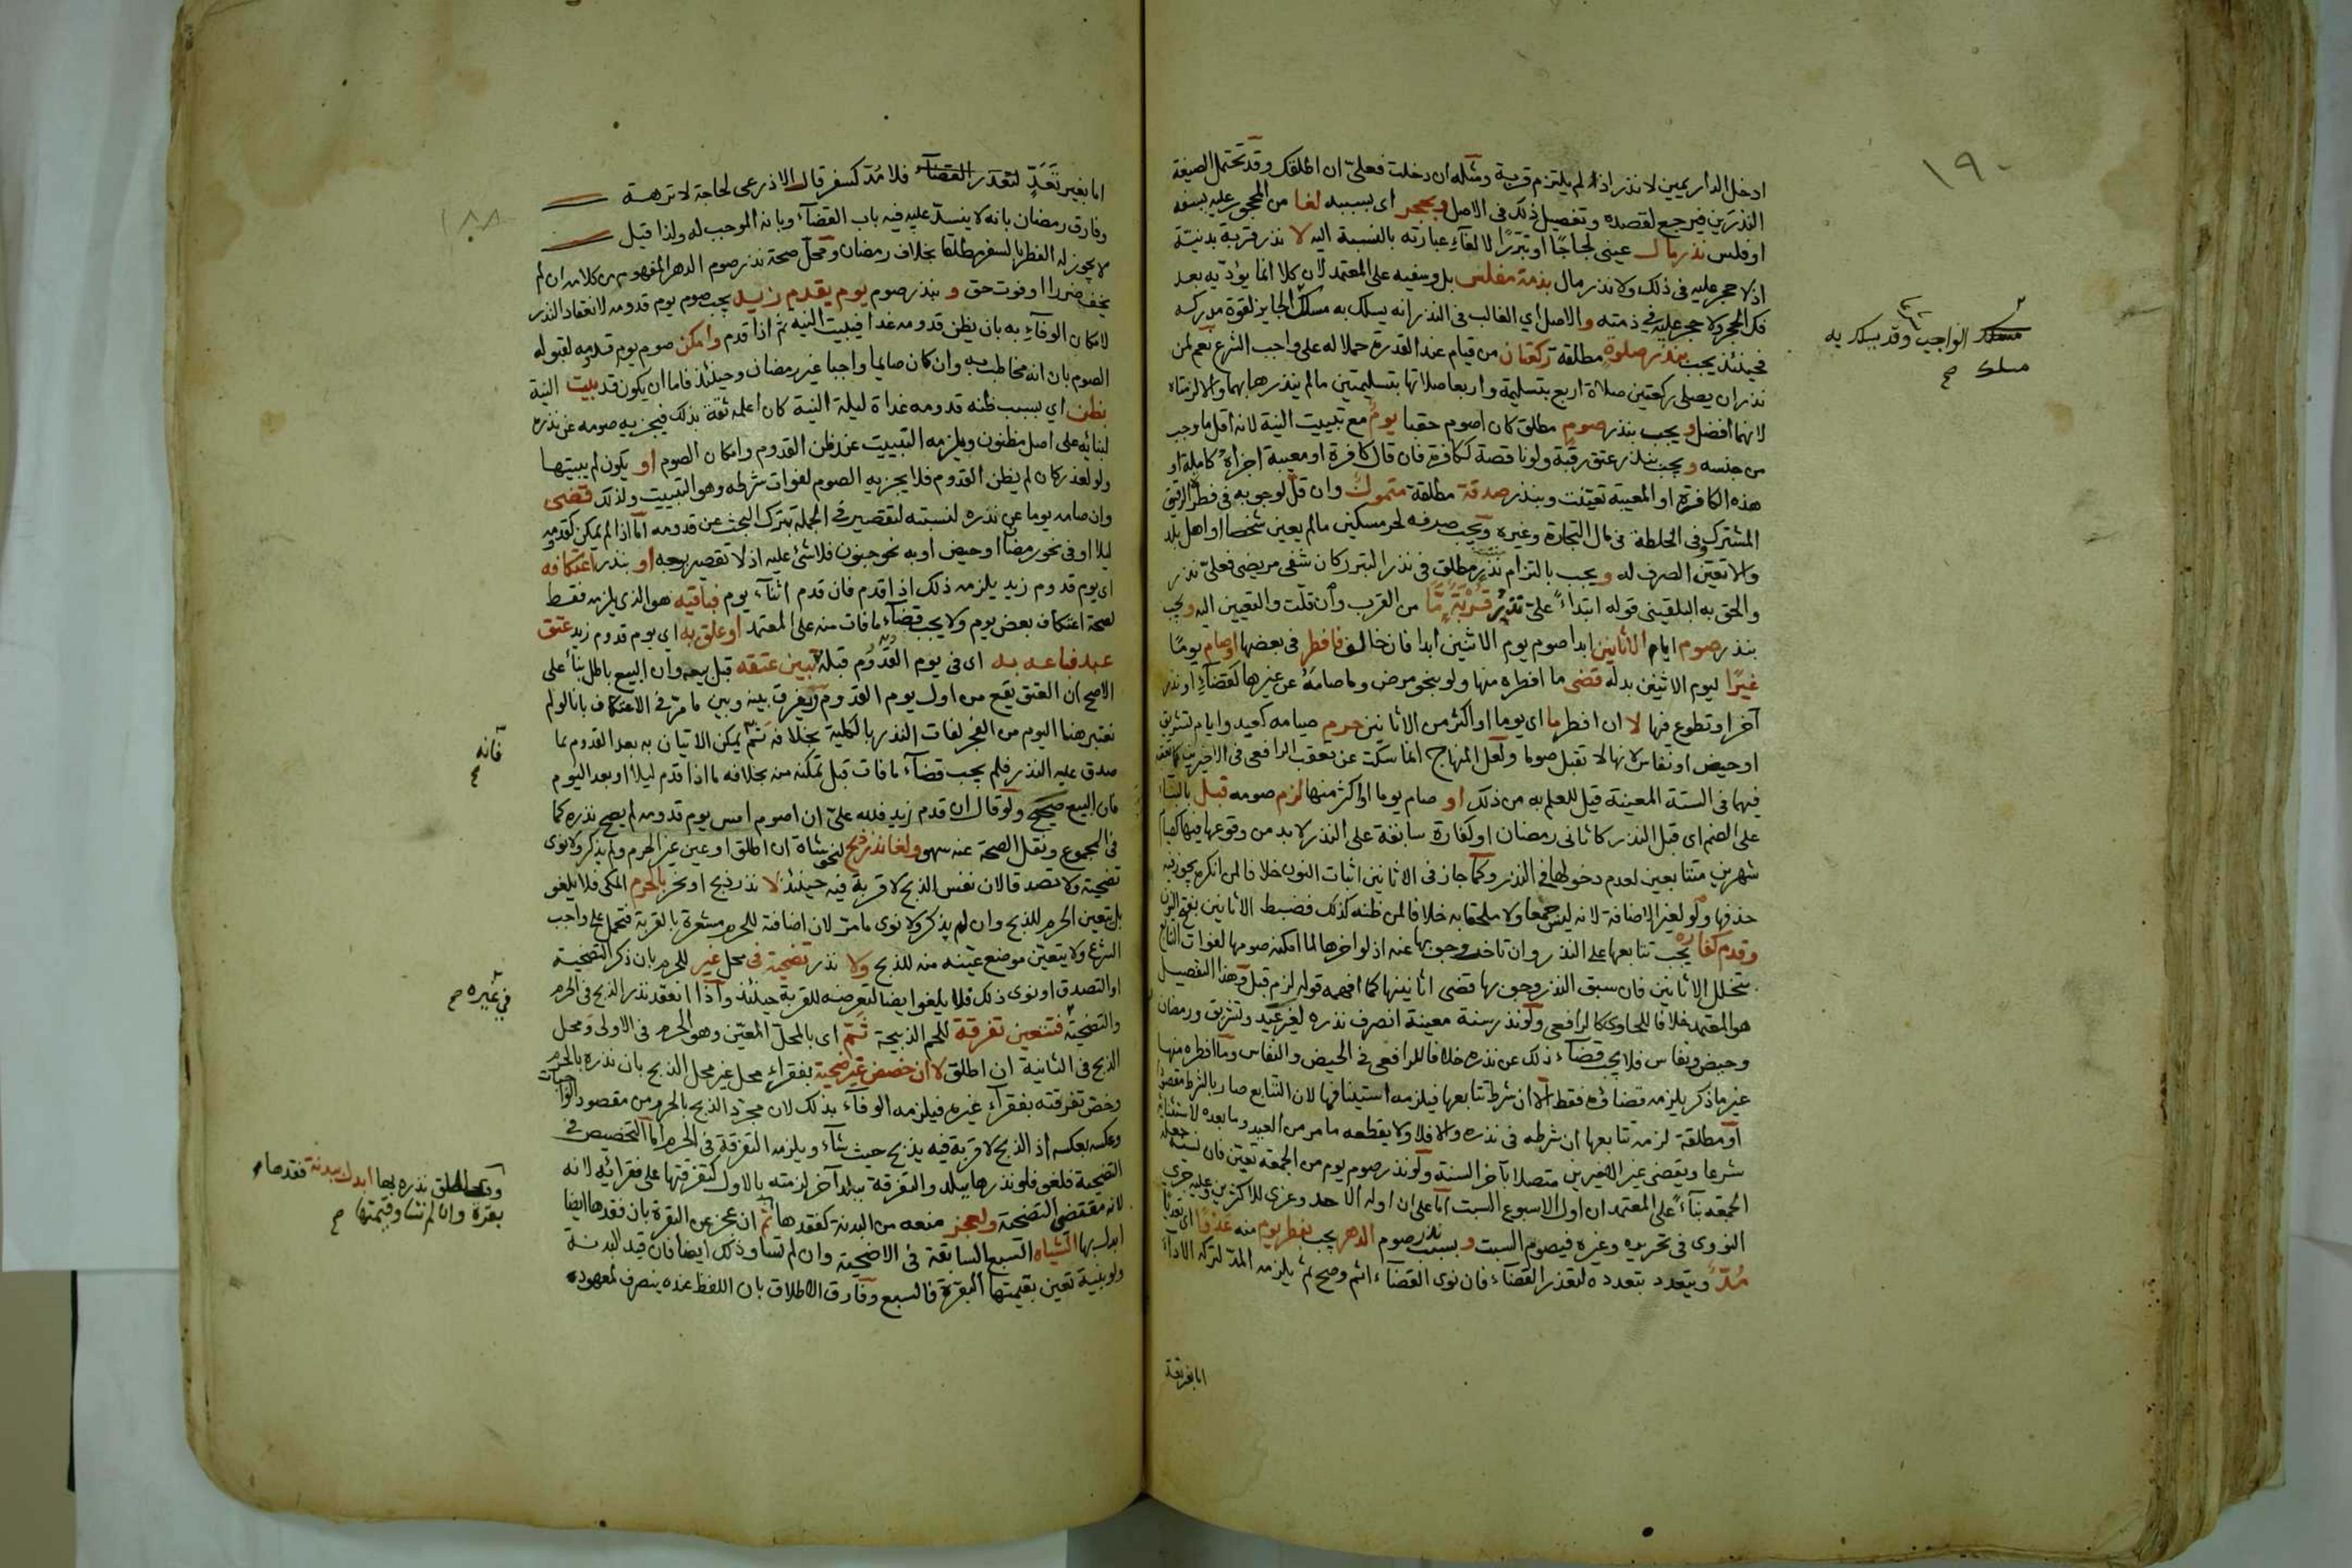 ١٩٠
ادخل الدار يمين لا نذر اذا لم يلتزم قربة ومثله ان دخلت فعلي ان اطلقك وقد تحتمل الصيغة
النذرين فيرجع لقصده وتفصيل ذلك في الاصل وبحجر اي بسببه لغا من المحجور عليه بسفه
او فلس نذر مال عيني لجاجا او تبررا لالغاء عبارته بالنسبة اليه لا نذر قربة بدنية
اذ لا حجر عليه في ذلك ولا نذر مال بذمة مفلس بل وسفيه على المعتمد لان كلا انما يؤديه بعد
فك الحجر ولا حجر عليه في ذمته والاصل اي الغالب في النذر انه يسلك به مسلك الجايز لقوة مدركه
فحينئذ يجب بنذر صلوة مطلقة ركعتان من قيام عند القدرة حملا له على واجب الشرع نعم لمن
نذر ان يصلي ركعتين صلاة اربع بتسليمة واربعا صلاتها بتسليمتين ما لم ينذرها بهما والا لزمتاه
لانهما افضل ويجب بنذر صوم مطلق كان اصوم حقبا يوم مع تبييت النية لانه اقل ما وجب
من جنسه ويجب بنذر عتق رقبة ولو ناقصة ككافرة فان قال كافرة او معيبة اجزاه كاملة او
هذه الكافرة او المعيبة تعينت وبنذر صدقة مطلقة متمول وان قل لوجوبه في فطر الرقيق
المشترك وفي الخلطة في مال التجارة وغيره ويجب صرفه لحر مسكين ما لم يعين شخصا او اهل بلد
والا تعين الصرف له ويجب بالتزام نذر مطلق في نذر التبرر كان شفي مريضي فعلي نذر
والحق به البلقيني قوله ابتداء علي نذر قربة ما من القرب وان قلت والتعيين اليه ويجب
بنذر صوم ايام الاثانين ابدا صوم يوم الاثنين ابدا فان خالف فافطر في بعضها او صام يوما
غيرا ليوم الاثنين بدله قضى ما افطره منها ولو بنحو مرض وما صامه عن غيرها كقضاء او نذر
آخر او تطوع فيها لا ان افطر ما اي يوما او اكثر من الاثانين حرم صيامه كعيد وايام تشريق
او حيض او نفاس لانها لا تقبل صوما ولعل المنهاج انما سكت عن تعقب الرافعي في الاخيرين
فيهما في السنة المعينة قيل للعلم به من ذلك او صام يوما او اكثر منها لزم صومه قبل بالبناء
على الضم اي قبل النذر كاثاني رمضان او لكفارة سابقة على النذر لا بد من وقوعها فيها كصيام
شهرين متتابعين لعدم دخولها في النذر وكما جاز في الاثانين اثبات النون خلافا لمن انكره يجوز فيه
حذفها ولو لغير الاضافة لانه ليس جمعا ولا ملحقا به خلافا لمن ظنه كذلك فضبط الاثانين بفتح النون
وقدم كفارة يجب تتابعها على النذر وان تاخر وجوبها عنه اذ لو اخرها لما امكنه صومها لفوات التتابع
بتخلل الاثانين فان سبق النذر وجوبها قضى اثانينها كما افهمه قوله لزم قبل وهذا التفصيل
هو المعتمد خلافا للحاوي كالرافعي ولو نذر سنة معينة انصرف نذره لغير عيد وتشريق ورمضان
وحيض ونفاس فلا يجب قضاء ذلك عن نذره خلافا للرافعي في الحيض والنفاس وما افطره منها
غير ما ذكر يلزمه قضاؤه فقط الا ان شرط تتابعها فيلزمه استينافها لان التتابع صار بالشرط مقصودا
او مطلقة لزمه تتابعها ان شرطه في نذره والا فلا ولا يقطعه ما مر من العيد وما بعده لاستثنائه
شرعا ويقضي غير الاخيرين متصلا بآخر السنة ولو نذر صوم يوم من الجمعة تعين فان نسيه جعله
الجمعة بناء على المعتمد ان اول الاسبوع السبت اما على ان اوله الاحد وعزي للاكثرين وعليه جرى
النووي في تحريره وغيره فيصوم السبت وبسبب نذر صوم الدهر يجب بفطر يوم منه عدوا اي تعديا
مد ويتعدد بتعدده لتعذر القضاء فان نوى القضاء اثم وصح ثم يلزمه المد لتركه الاداء
اما بغير تعد
مسلك الواجب وقد يسلك به
مسلك صح
١٨٨
اما بغير تعد لتعذر القضاء فلا مد كسفر قال الاذرعي لحاجة لا نزهة
وفارق رمضان بانه لا ينسد عليه فيه باب القضاء وبانه الموجب له ولذا قيل
لا يجوز له الفطر بالسفر مطلقا بخلاف رمضان ومحل صحة نذر صوم الدهر المفهوم من كلامه ان لم
يخف ضررا او فوت حق وبنذر صوم يوم يقدم زيد يجب صوم يوم قدومه لانعقاد النذر
لامكان الوفاء به بان يظن قدومه غدا فيبيت النية ثم اذا قدم وامكن صوم يوم قدومه لقبوله
الصوم بان انه مخاطب به وان كان صايما واجبا غير رمضان وحينئذ فاما ان يكون قد بيت النية
بظن اي بسبب ظنه قدومه غداة ليلة النية كان اعلمه ثقة بذلك فيجزيه صومه عن نذره
لبنائه على اصل مظنون ويلزمه التبييت عند ظن القدوم وامكان الصوم او يكون لم يبيتها
ولو لعذر كان لم يظن القدوم فلا يجزيه الصوم لفوات شرطه وهو التبييت ولذلك قضى
وان صامه يوما عن نذره لنسبته لتقصير في الجملة بترك البحث عن قدومه اما اذا لم يمكن كقدومه
ليلا او في نحو رمضان او حيض او به نحو جنون فلا شئ عليه اذ لا تقصير بوجه او بنذر اعتكافه
اي يوم قدوم زيد يلزمه ذلك اذا قدم فان قدم اثناء يوم فباقيه هو الذي يلزمه فقط
لصحة اعتكاف بعض يوم ولا يجب قضاء ما فات منه على المعتمد او علق به اي يوم قدوم زيد عتق
عبد فباعه به اي في يوم القدوم قبله تبين عتقه قبل بيعه وان البيع باطل بناء على
الاصح ان العتق يقع من اول يوم القدوم ويفرق بينه وبين ما مر في الاعتكاف بانا لو لم
نعتبر هنا اليوم من الفجر لفات النذر بالكلية بخلافه ثم يمكن الاتيان به بعد القدوم بما
صدق عليه النذر فلم يجب قضاء ما فات قبل تمكنه منه بخلافه ما اذا قدم ليلا او بعد اليوم
فان البيع صحيح ولو قال ان قدم زيد فلله علي ان اصوم امس يوم قدومه لم يصح نذره كما
في المجموع ونقل الصحة عنه سهو ولغا نذر ذبح لنحو شاة ان اطلق او عين غير الحرم ولم يذكر ولا نوى
تضحية ولا تصدقا لان نفس الذبح لا قربة فيه حينئذ لا نذر ذبح او نحر بالحرم المكي فلا يلغو
بل يتعين الحرم للذبح وان لم يذكر ولا نوى ما مر لان اضافته للحرم مشعرة بالقربة فتحمل على واجب
الشرع ولا يتعين موضع عينه منه للذبح ولا نذر تضحية في محل غير للحرم بان ذكر التضحية
او التصدق او نوى ذلك فلا يلغو ايضا لتعرضه للقربة حينئذ واذا انعقد نذر الذبح في الحرم
والتضحية فتتعين تفرقة للحم الذبيحة ثم اي بالمحل المعين وهو الحرم في الاولى ومحل
الذبح في الثانية ان اطلق لا ان خصص غير ضحية بفقراء محل غير محل الذبح بان نذره بالحرم
وخص تفرقته بفقراء غيره فيلزمه الوفاء بذلك لان مجرد الذبح بالحرم من مقصود
وعكسه بعكسه اذ الذبح لا قربة فيه يذبح حيث شاء ويلزمه التفرقة في الحرم اما التخصيص في
التضحية فلغو فلو نذرها ببلد والتفرقة ببلد آخر لزمته بالاول كتفرقتها على فقرائه لانه
لانه مقتضى التضحية ولعجز منعه من البدنة كفقدها ثم ان عجز عن البقرة بان فقدها ايضا
ابدل بها الشياه السبع السابقة في الاضحية وان لم تساو ذلك ايضا فان قيد البدنة
ولو بنية تعين بقيمتها البقرة فالسبع وفارق الاطلاق بان اللفظ عنده ينصرف لمعهود
فانه صح
في غيره صح
نذره بها ابدل ببدنة فقدها
بقرة وان لم تساو قيمتها صح